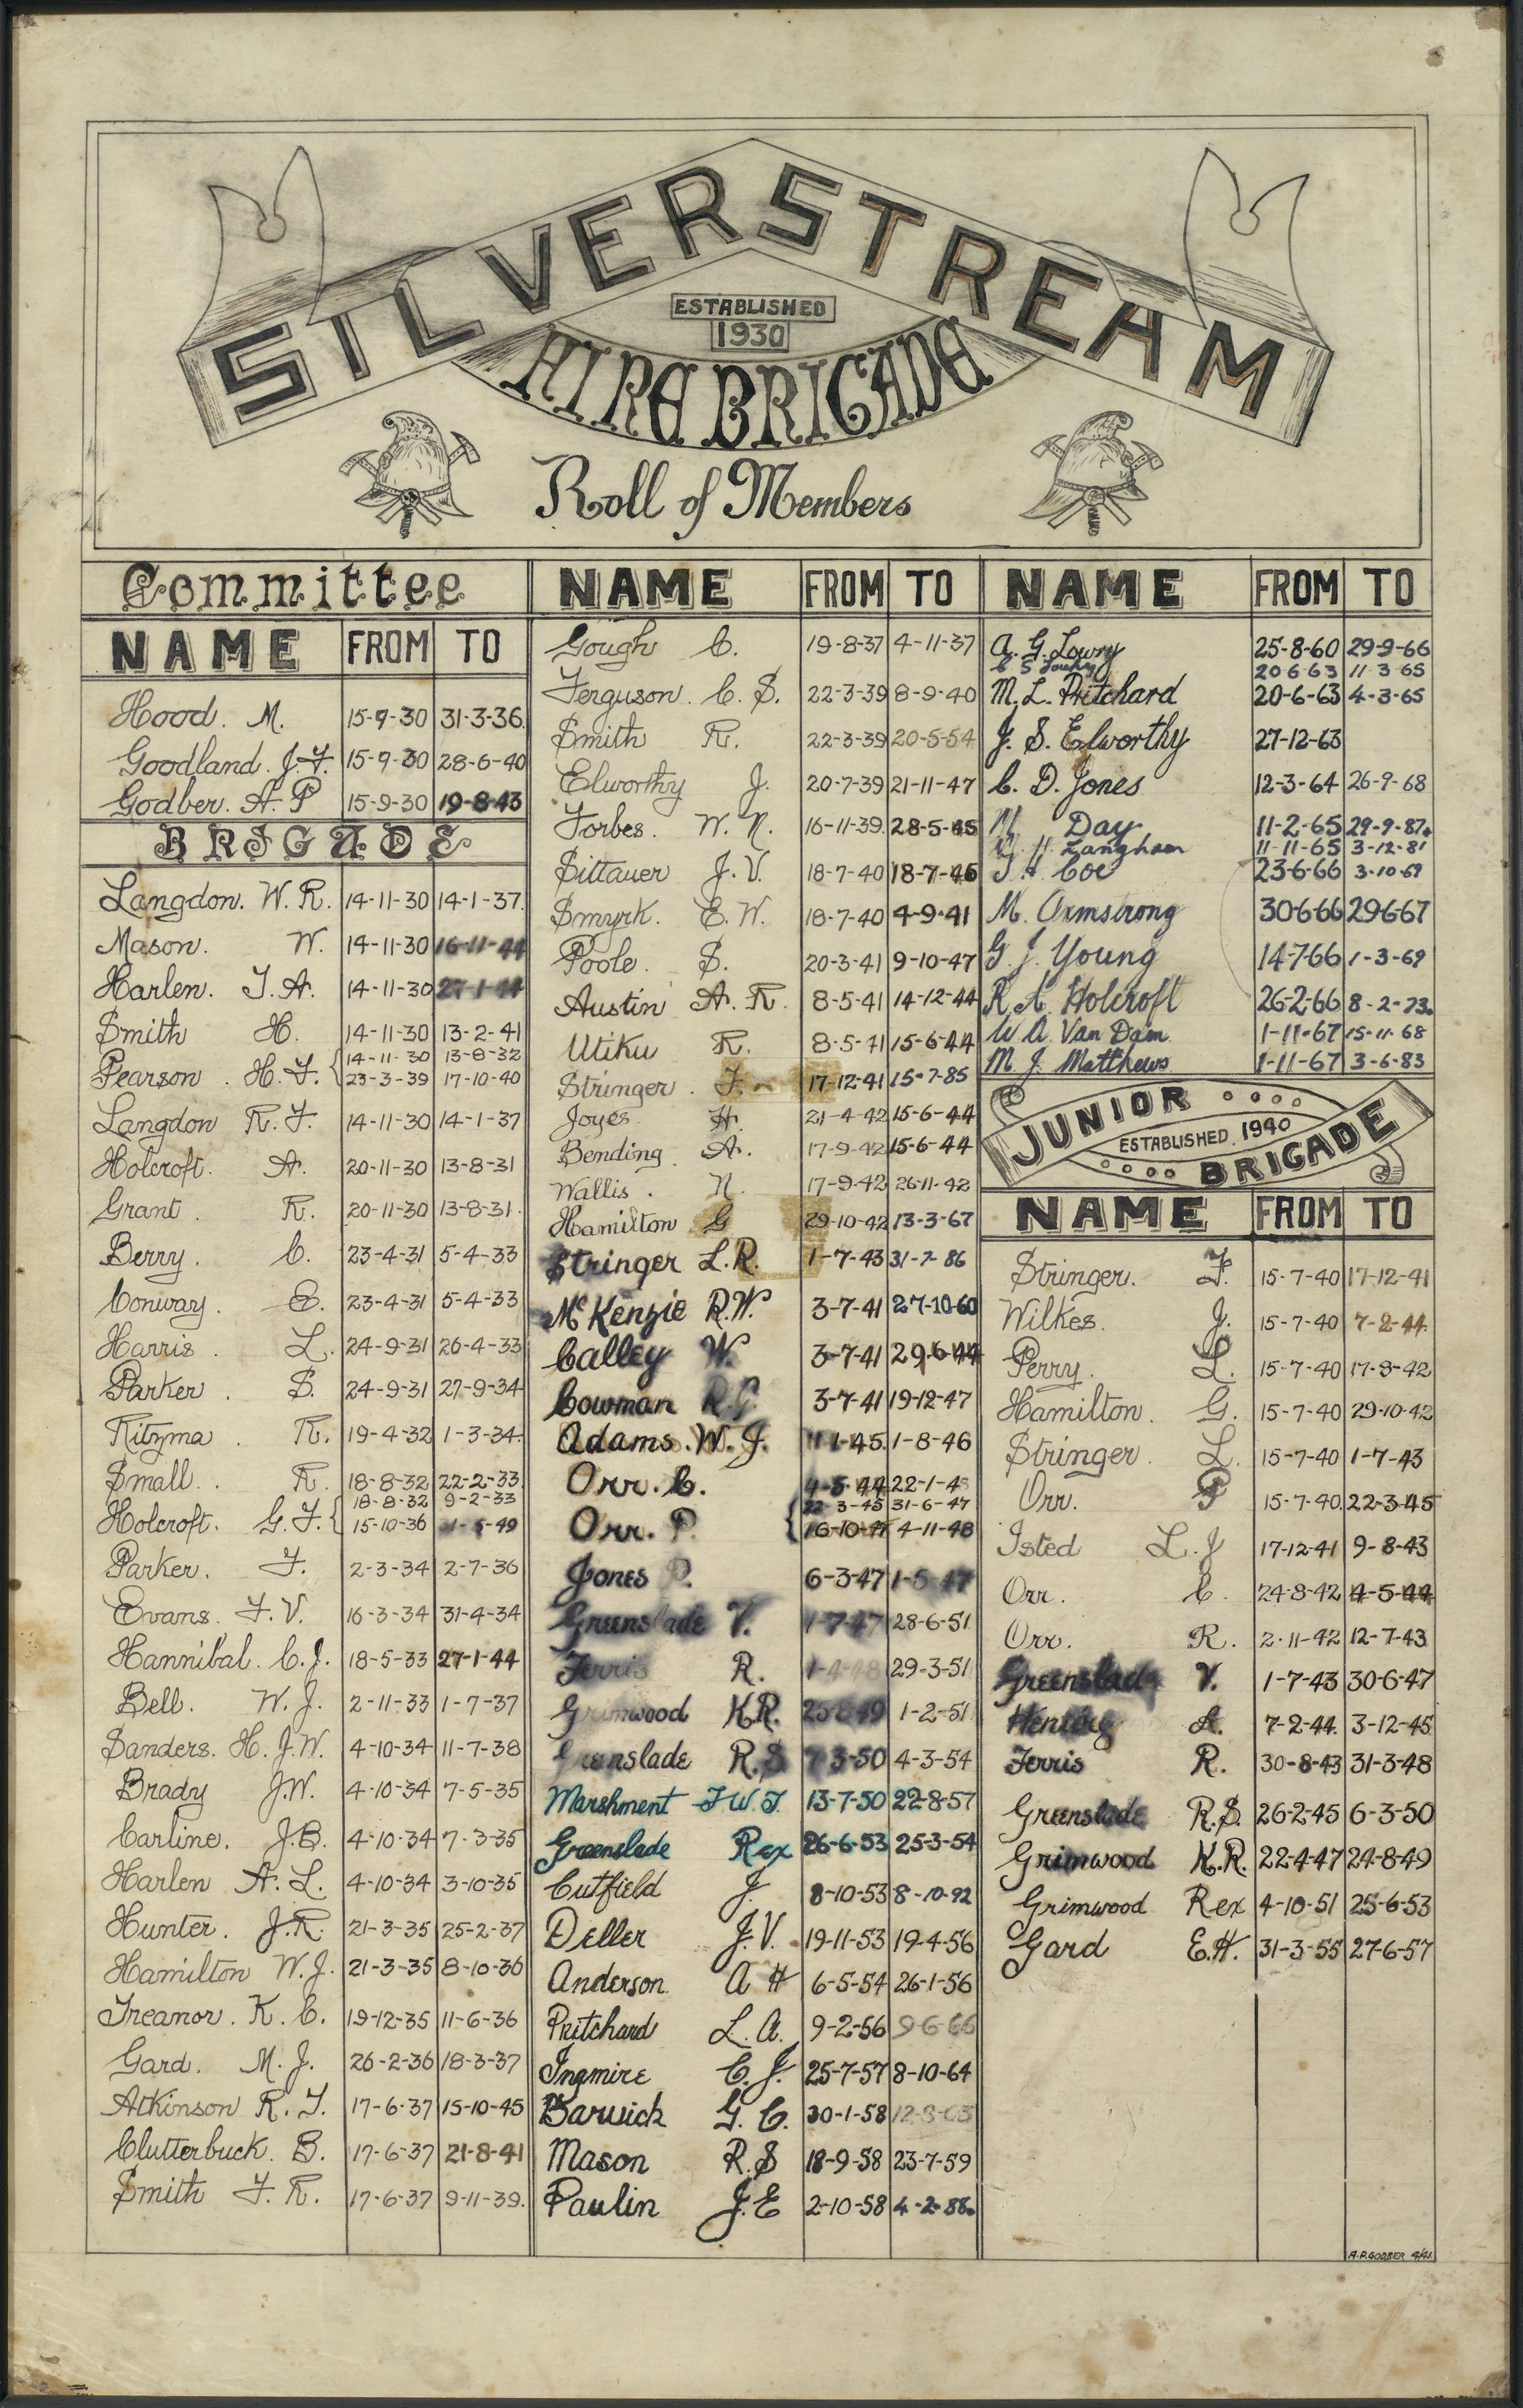 SILVERSTREAM
ESTABLISHED
1930
FIRE BRIGADE
Roll of Members
Committee
NAME FROM TO
Hood. M. 15-9-30 31-3-36
Goodland. J.F. 15-9-30 28-6-40
Godber. A. P 15-9-30 19-8-43
BRIGADE
Langdon. W. R. 14-11-30 14-1-37.
Mason. W. 14-11-30 16-11-44
Harlen. T. A. 14-11-30 27-1-44
Smith H. 14-11-30 13-2-41
Pearson. H. F. { 14-11-30 13-8-32
23-3-39 17-10-40
Langdon R. F. 14-11-30 14-1-37
Holcroft. A. 20-11-30 13-8-31
Grant. R. 20-11-30 13-8-31.
Berry. C. 23-4-31 5-4-33
Conway. E. 23-4-31 5-4-33
Harris. L. 24-9-31 26-4-33
Parker. S. 24-9-31 27-9-34
Ritzma. R. 19-4-32 1-3-34.
Small. R. 18-8-32 22-2-33
Holcroft. G. F. { 18-8-32 9-2-33
15-10-36 -49
Parker. F. 2-3-34 2-7-36
Evans. F. V. 16-3-34 31-4-34
Hannibal. C. J. 18-5-33 27-1-44
Bell. W. J. 2-11-33 1-7-37
Sanders. H. J.W. 4-10-34 11-7-38
Brady J.W. 4-10-34 7-5-35
Carline. J.B. 4-10-34 7-3-35
Harlen A. L. 4-10-34 3-10-35
Hunter. J.R. 21-3-35 25-2-37
Hamilton W. J. 21-3-35 8-10-36
Treanor. K. C. 19-12-35 11-6-36
Gard. M. J. 26-2-36 18-3-37
Atkinson R. T. 17-6-37 15-10-45
Clutterbuck. B. 17-6-37 21-8-41
Smith F. R. 17-6-37 9-11-39.
NAME FROM TO
Gough C. 19-8-37 4-11-37
Ferguson. C. S. 22-3-39 8-9-40
Smith R. 22-3-39 20-5-54
Elworthy J. 20-7-39 21-11-47
Forbes. W. N. 16-11-39. 28-5-45
Sittauer J. V. 18-7-40 18-7-45
Smyrk. E. W. 18-7-40 4-9-41
Poole. S. 20-3-41 9-10-47
Austin A. R. 8-5-41 14-12-44
Utiku R. 8-5-41 15-6-44
Stringer. F. 17-12-41 15-7-85
Joyes H. 21-4-42 15-6-44
Bending. A. 17-9-42 15-6-44
Wallis. N. 17-9-42 26-11-42
Hamilton G 29-10-42 13-3-67
Stringer L.R. 1-7-43 31-7-86
McKenzie R.W. 3-7-41 27-10-60
Calley W. 3-7-41 29-6-44
Cowman R.G. 3-7-41 19-12-47
Adams. W. J. 1-45 1-8-46
Orr. C. 4-5-44 22-1-4
Orr. P. { 22-3-45 31-6-47
16-10-47 4-11-48
Jones P. 6-3-47 1-5-47
Greenslade V. 1-7-47 28-6-51
Ferris R. 1-4-48 29-3-51
Grimwood K.R. 25-8-49 1-2-51
Greenslade R.S. 7-3-50 4-3-54
Marshment F W. T. 13-7-50 22-8-57
Greenslade Rex 26-6-53 25-3-54
Cutfield J. 8-10-53 8-10-92
Deller J.V. 19-11-53 19-4-56
Anderson. A H 6-5-54 26-1-56
Pritchard L. A. 9-2-56 9-6-66
Ingmire C. J. 25-7-57 8-10-64
Barwick G. C. 30-1-58 12-8-65
Mason R.S 18-9-58 23-7-59
Paulin J.E 2-10-58 4-2-88.
NAME FROM TO
A. G. Lowry 25-8-60 29-9-66
C S 20-6-63 11-3-65
M. L. Pritchard 20-6-63 4-3-65
J. S. Elworthy 27-12-63
C. D. Jones 12-3-64 26-9-68
Day 11-2-65 29-9-87.
H Langham 11-11-65 3-12-81
Coe 23-6-66 3-10-69
M. Armstrong 30-6-66 29-6-67
G. J. Young 14-7-66 1-3-69
R A Holcroft 26-2-66 8-2-73.
W. A. Van Dam. 1-11-67 15-11-68
M. J. Matthews 1-11-67 3-6-83
JUNIOR
ESTABLISHED. 1940
BRIGADE
NAME FROM TO
Stringer. F. 15-7-40 17-12-41
Wilkes. J. 15-7-40 7-2-44.
Perry. L. 15-7-40 17-8-42
Hamilton. G. 15-7-40 29-10-42
Stringer. L. 15-7-40 1-7-43
Orr. P 15-7-40. 22-3-45
Isted L. J 17-12-41 9-8-43
Orr. C. 24-8-42 4-5-44
Orr. R. 2-11-42 12-7-43
Greenslade V. 1-7-43 30-6-47
A. 7-2-44. 3-12-45
Ferris R. 30-8-43 31-3-48
Greenslade R.S. 26-2-45 6-3-50
Grimwood K.R. 22-4-47 24-8-49
Grimwood Rex 4-10-51 25-6-53
Gard E.H. 31-3-55 27-6-57
A.P. GODBER 4/41.